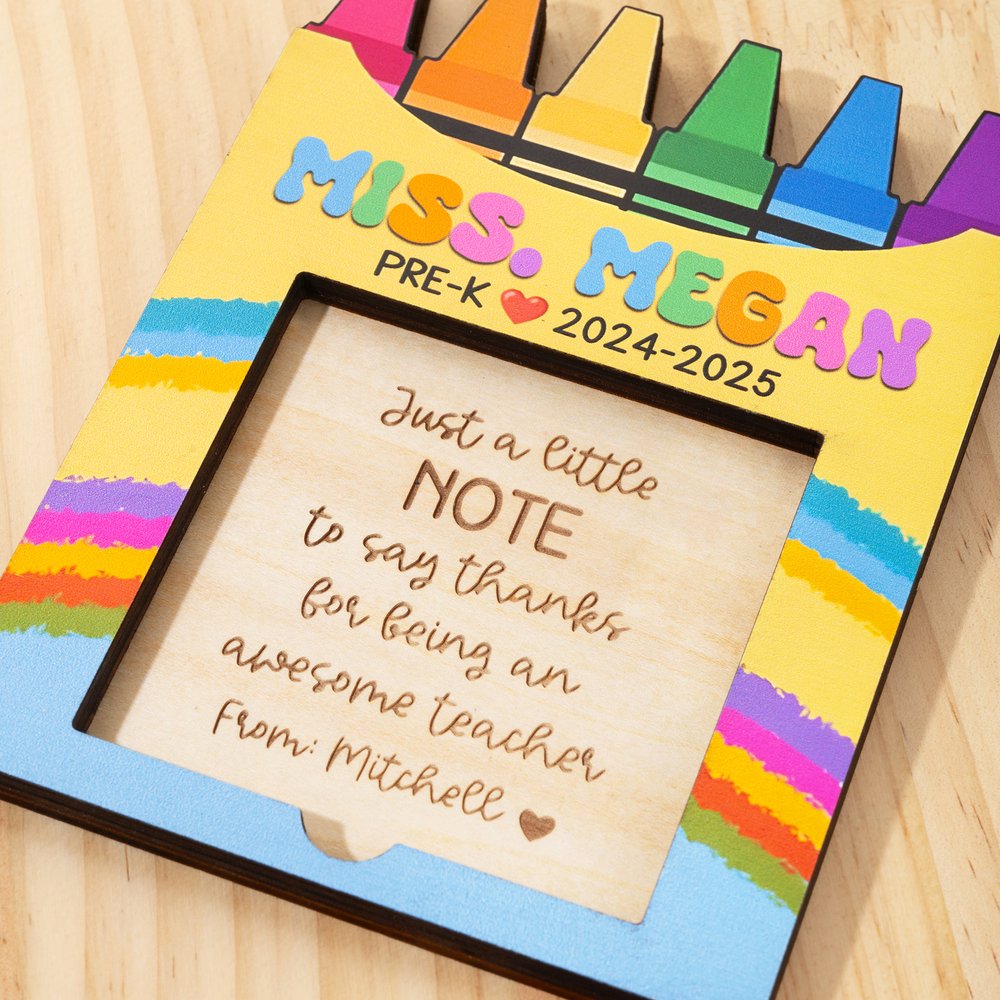 MISS. MEGAN
PRE-K ❤️ 2024-2025
Just a little
NOTE
to say thanks
for being an
awesome teacher
From: Mitchell ♥